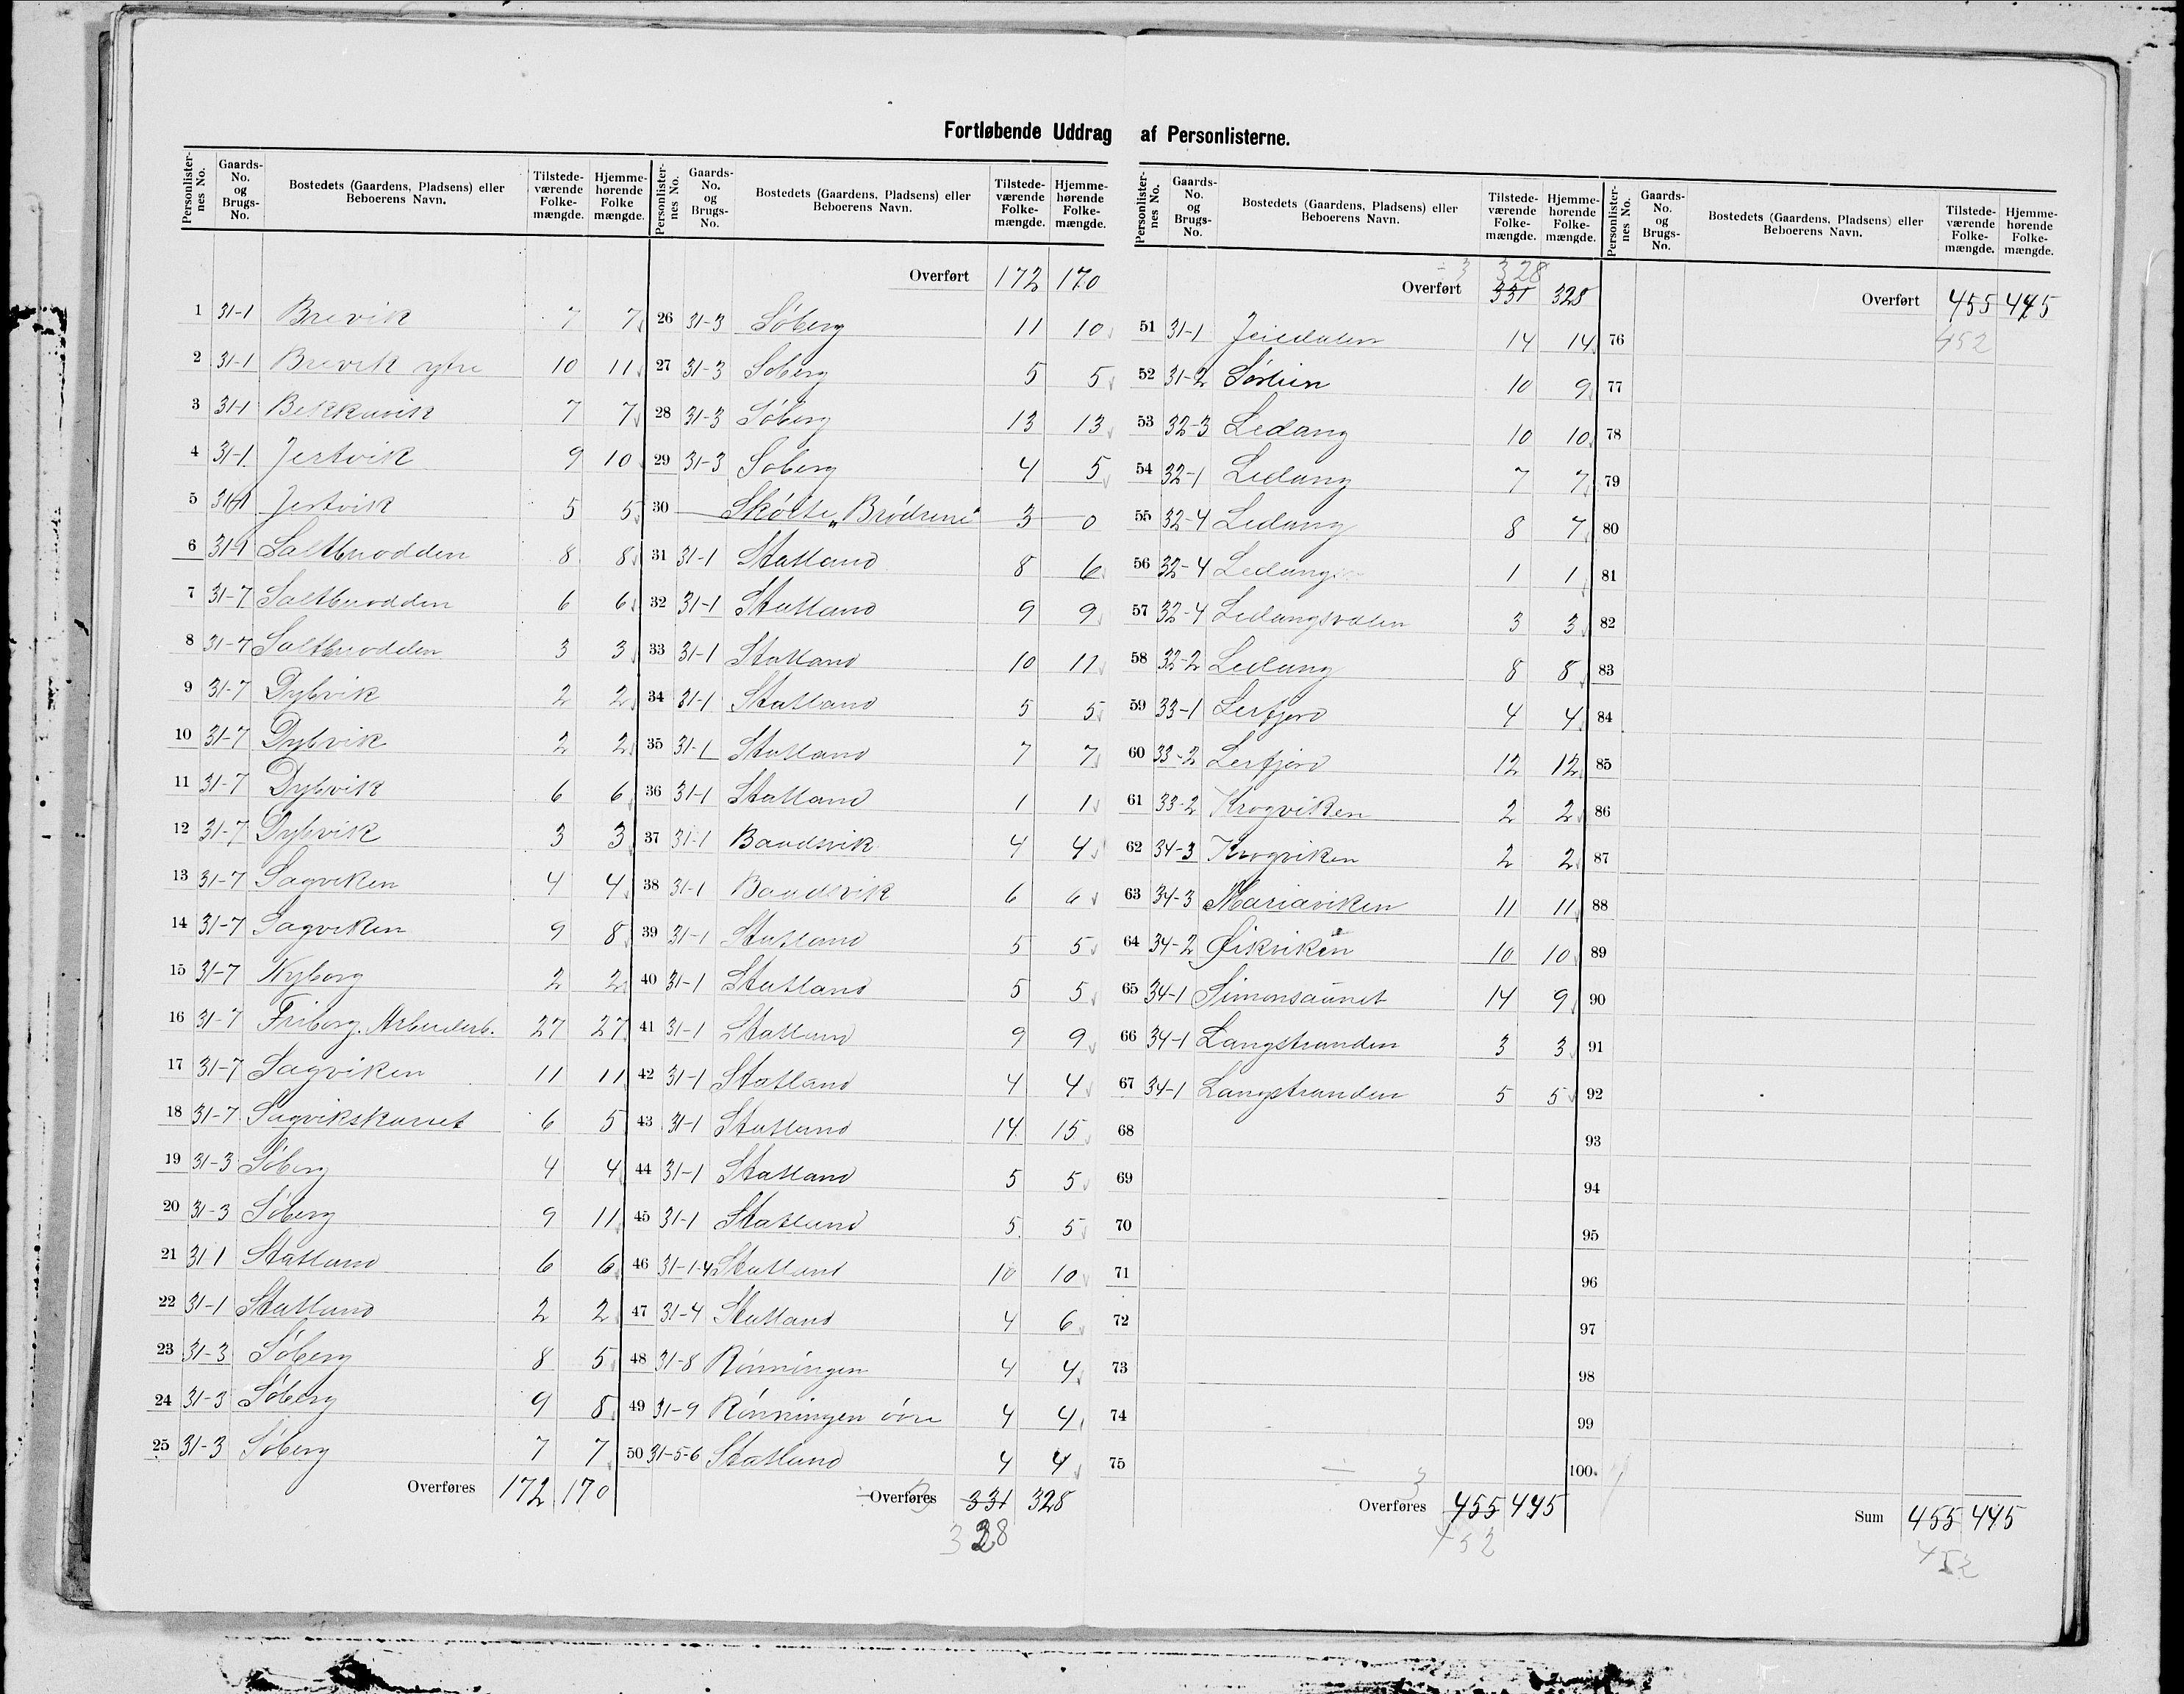 Fortløbende Uddrag af Personlisterne.
Personlister-nes No. Gaards-No. og Brugs-No. Bostedets (Gaardens, Pladsens) eller Beboerens Navn. Tilstede-værende Folke-mængde. Hjemme-hørende Folke mængde.
1 31-1 Brevik 7 7
2 31-1 Brevik ytre 10 11
3 31-1 Bekkavik 7 7
4 31-1 Jertvik 9 10
5 31-1 Jertvik 5 5
6 31-1 Saltbuodden 8 8
7 31-7 Saltbuodden 6 6
8 31-7 Saltbuodden 3 3
9 31-7 Dybvik 2 2
10 31-7 Dybvik 2 2
11 31-7 Dybvik 6 6
12 31-7 Dybvik 3 3
13 31-7 Sagviken 4 4
14 31-7 Sagviken 9 8
15 31-7 Nyborg 2 2
16 31-7 Friborg. Arbeiderb. 27 27
17 31-7 Sagviken 11 11
18 31-7 Sagvikskaret 6 5
19 31-3 Søberg 4 4
20 31-3 Søberg 9 11
21 31 1 Statland 6 6
22 31-1 Statland 2 2
23 31-3 Søberg 8 5
24 31-3 Søberg 9 8
25 31-3 Søberg 7 7
Overføres 172 170
Personlister-nes No. Gaards-No. og Brugs-No. Bostedets (Gaardens, Pladsens) eller Beboerens Navn. Tilstede-værende Folke-mængde. Hjemme-hørende Folke-mængde.
Overført 172 170
26 31-3 Søberg 11 10
27 31-3 Søberg 5 5
28 31-3 Søberg 13 13
29 31-3 Søberg 4 5
30 Skøite "Brødrene" 3 0
31 31-1 Statland 8 6
32 31-1 Statland 9 9
33 31-1 Statland 10 11
34 31-1 Statland 5 5
35 31-1 Statland 7 7
36 31-1 Statland 1 1
37 31-1 Baadsvik 4 4
38 31-1 Baadsvik 6 6
39 31-1 Statland 5 5
40 31-1 Statland 5 5
41 31-1 Statland 9 9
42 31-1 Statland 4 4
43 31-1 Statland 14 15
44 31-1 Statland 5 5
45 31-1 Statland 5 5
46 31-1-4 Statland 10 10
47 31-4 Statland 4 6
48 31-8 Rønningen 4 4
49 31-9 Rønningen övre 4 4
50 31-5-6 Statland 4 4
Overføres 331 328
328
Personlister-nes No. Gaards-No. og Brugs-No. Bostedets (Gaardens, Pladsens) eller Beboerens Navn. Tilstede-værende Folke-mængde. Hjemme-hørende Folke-mængde.
÷ 3 328
Overført 331 328
51 31-1 Jeildalen 14 14
52 31-2 Sørlien 10 9
53 32-3 Ledang 10 10
54 32-1 Ledang 7 7
55 32-4 Ledang 8 7
56 32-4 Ledang 1 1
57 32-4 Ledangsvalen 3 3
58 32-2 Ledang 8 8
59 33-1 Lerfjord 4 4
60 33-2 Lerfjord 12 12
61 33-2 Krogviken 2 2
62 34-3 Krogviken 2 2
63 34-3 Mariaviken 11 11
64 34-2 Eikviken 10 10
65 34-1 Simonsaunet 14 9
66 34-1 Langstranden 3 3
67 34-1 Langstranden 5 5
68
69
70
71
72
73
74
75
÷ 3
Overføres 455 445
452
Personlister-nes No. Gaards-No. og Brugs-No. Bostedets (Gaardens, Pladsens) eller Beboerens Navn. Tilstede-værende Folke-mængde. Hjemme-hørende Folke-mængde.
Overført 455 445
76 452
77
78
79
80
81
82
83
84
85
86
87
88
89
90
91
92
93
94
95
96
97
98
99
100
Sum 455 445
452